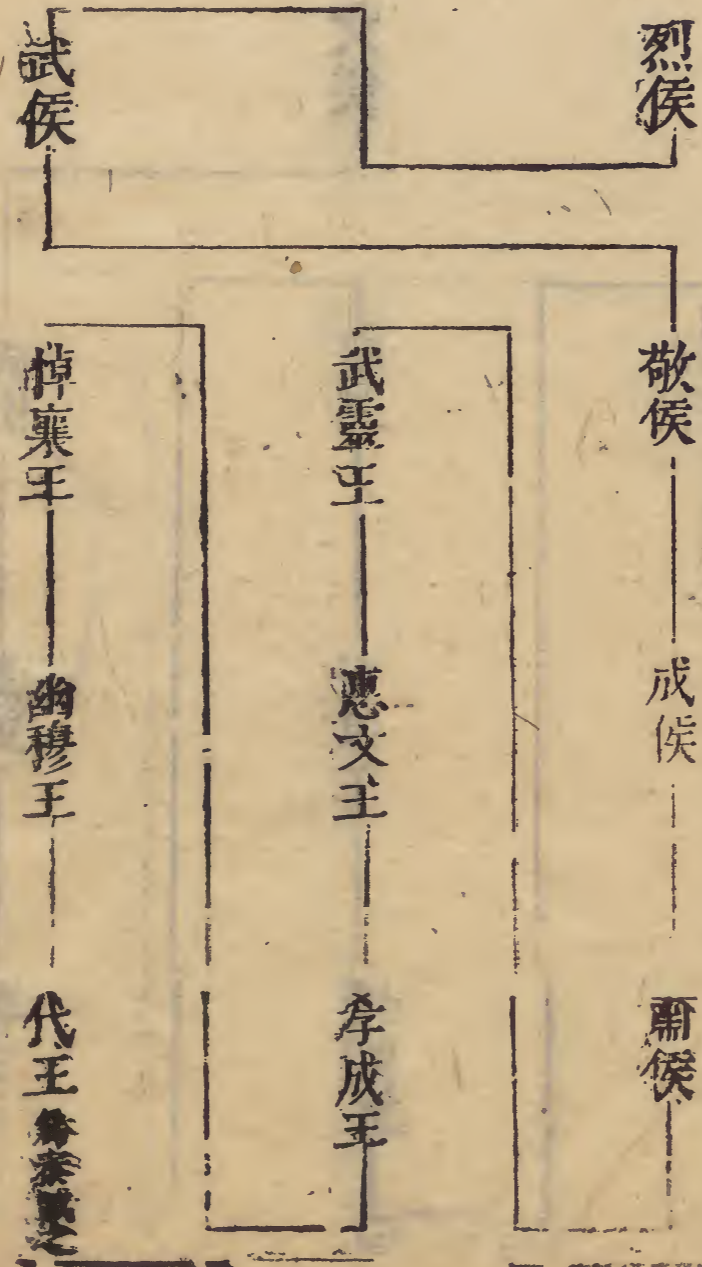 烈侯
武侯
敬侯
成侯
肅侯
武靈王
惠文王
孝成王
悼襄王
幽穆王
代王 爲秦滅之